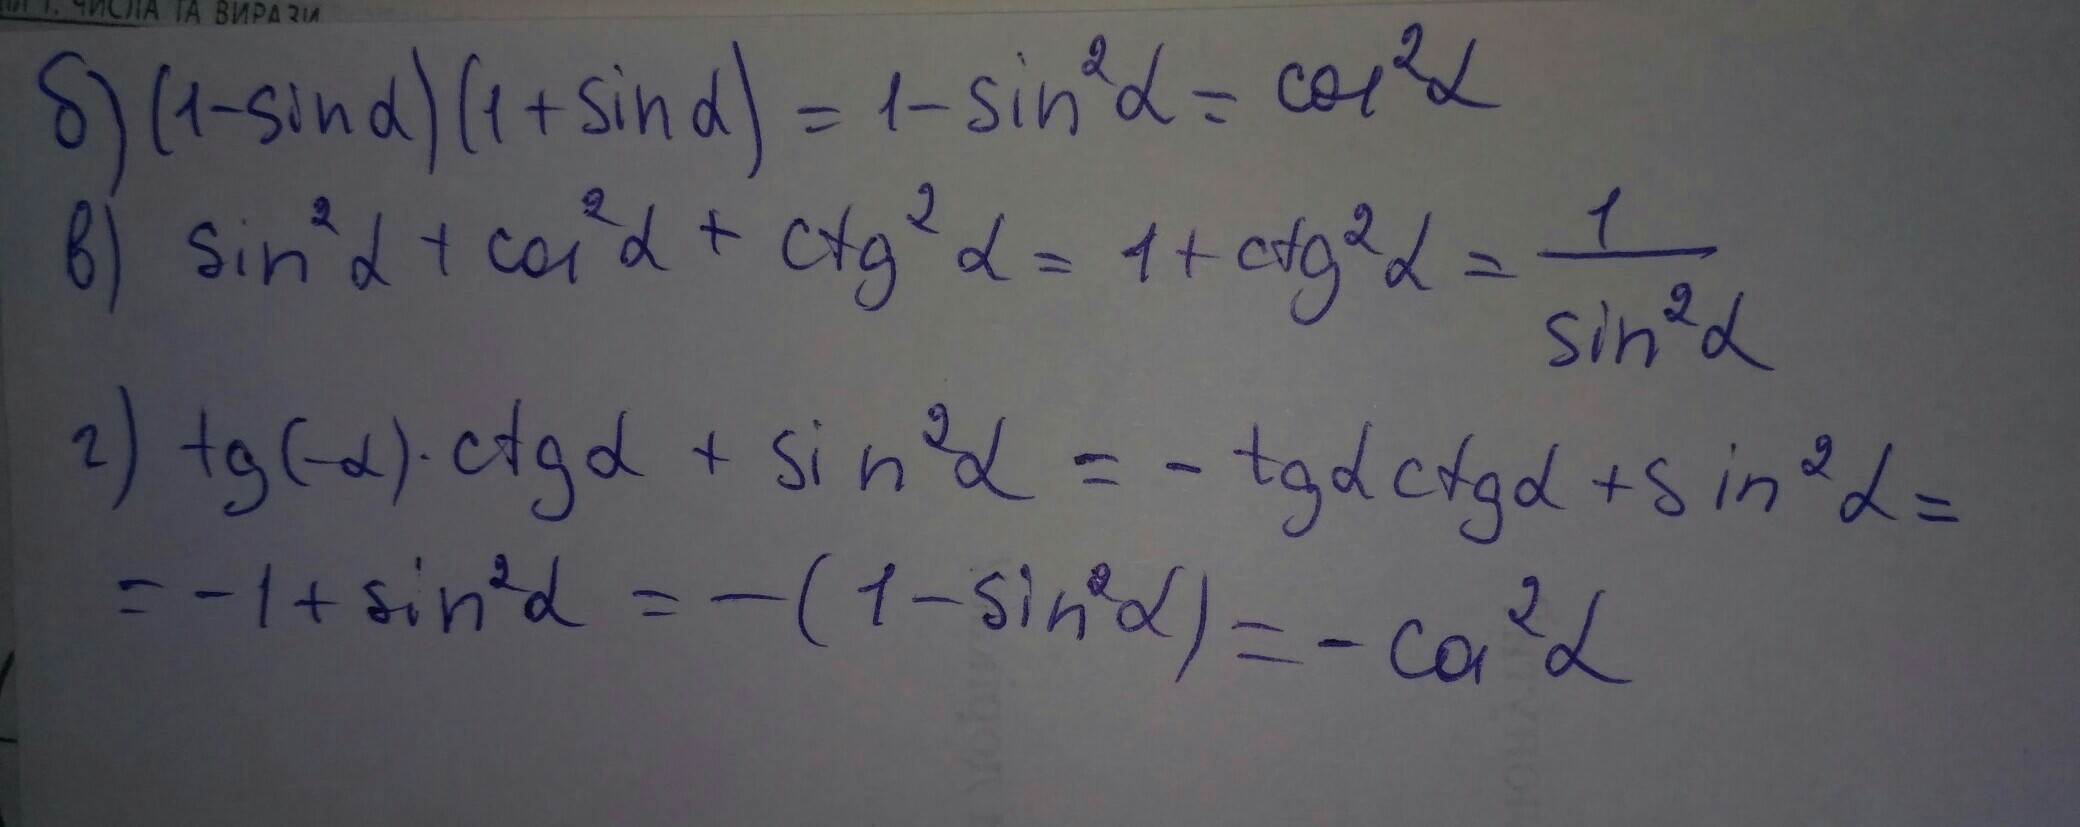 1. ЧИСЛА ТА ВИРАЗИ
б) (1-sinα)(1+sinα) = 1-sin²α = cos²α
в) sin²α + cos²α + ctg²α = 1+ctg²α = 1/sin²α
г) tg(-α)·ctgα + sin²α = -tgαctgα+sin²α =
= -1+sin²α = -(1-sin²α) = -cos²α